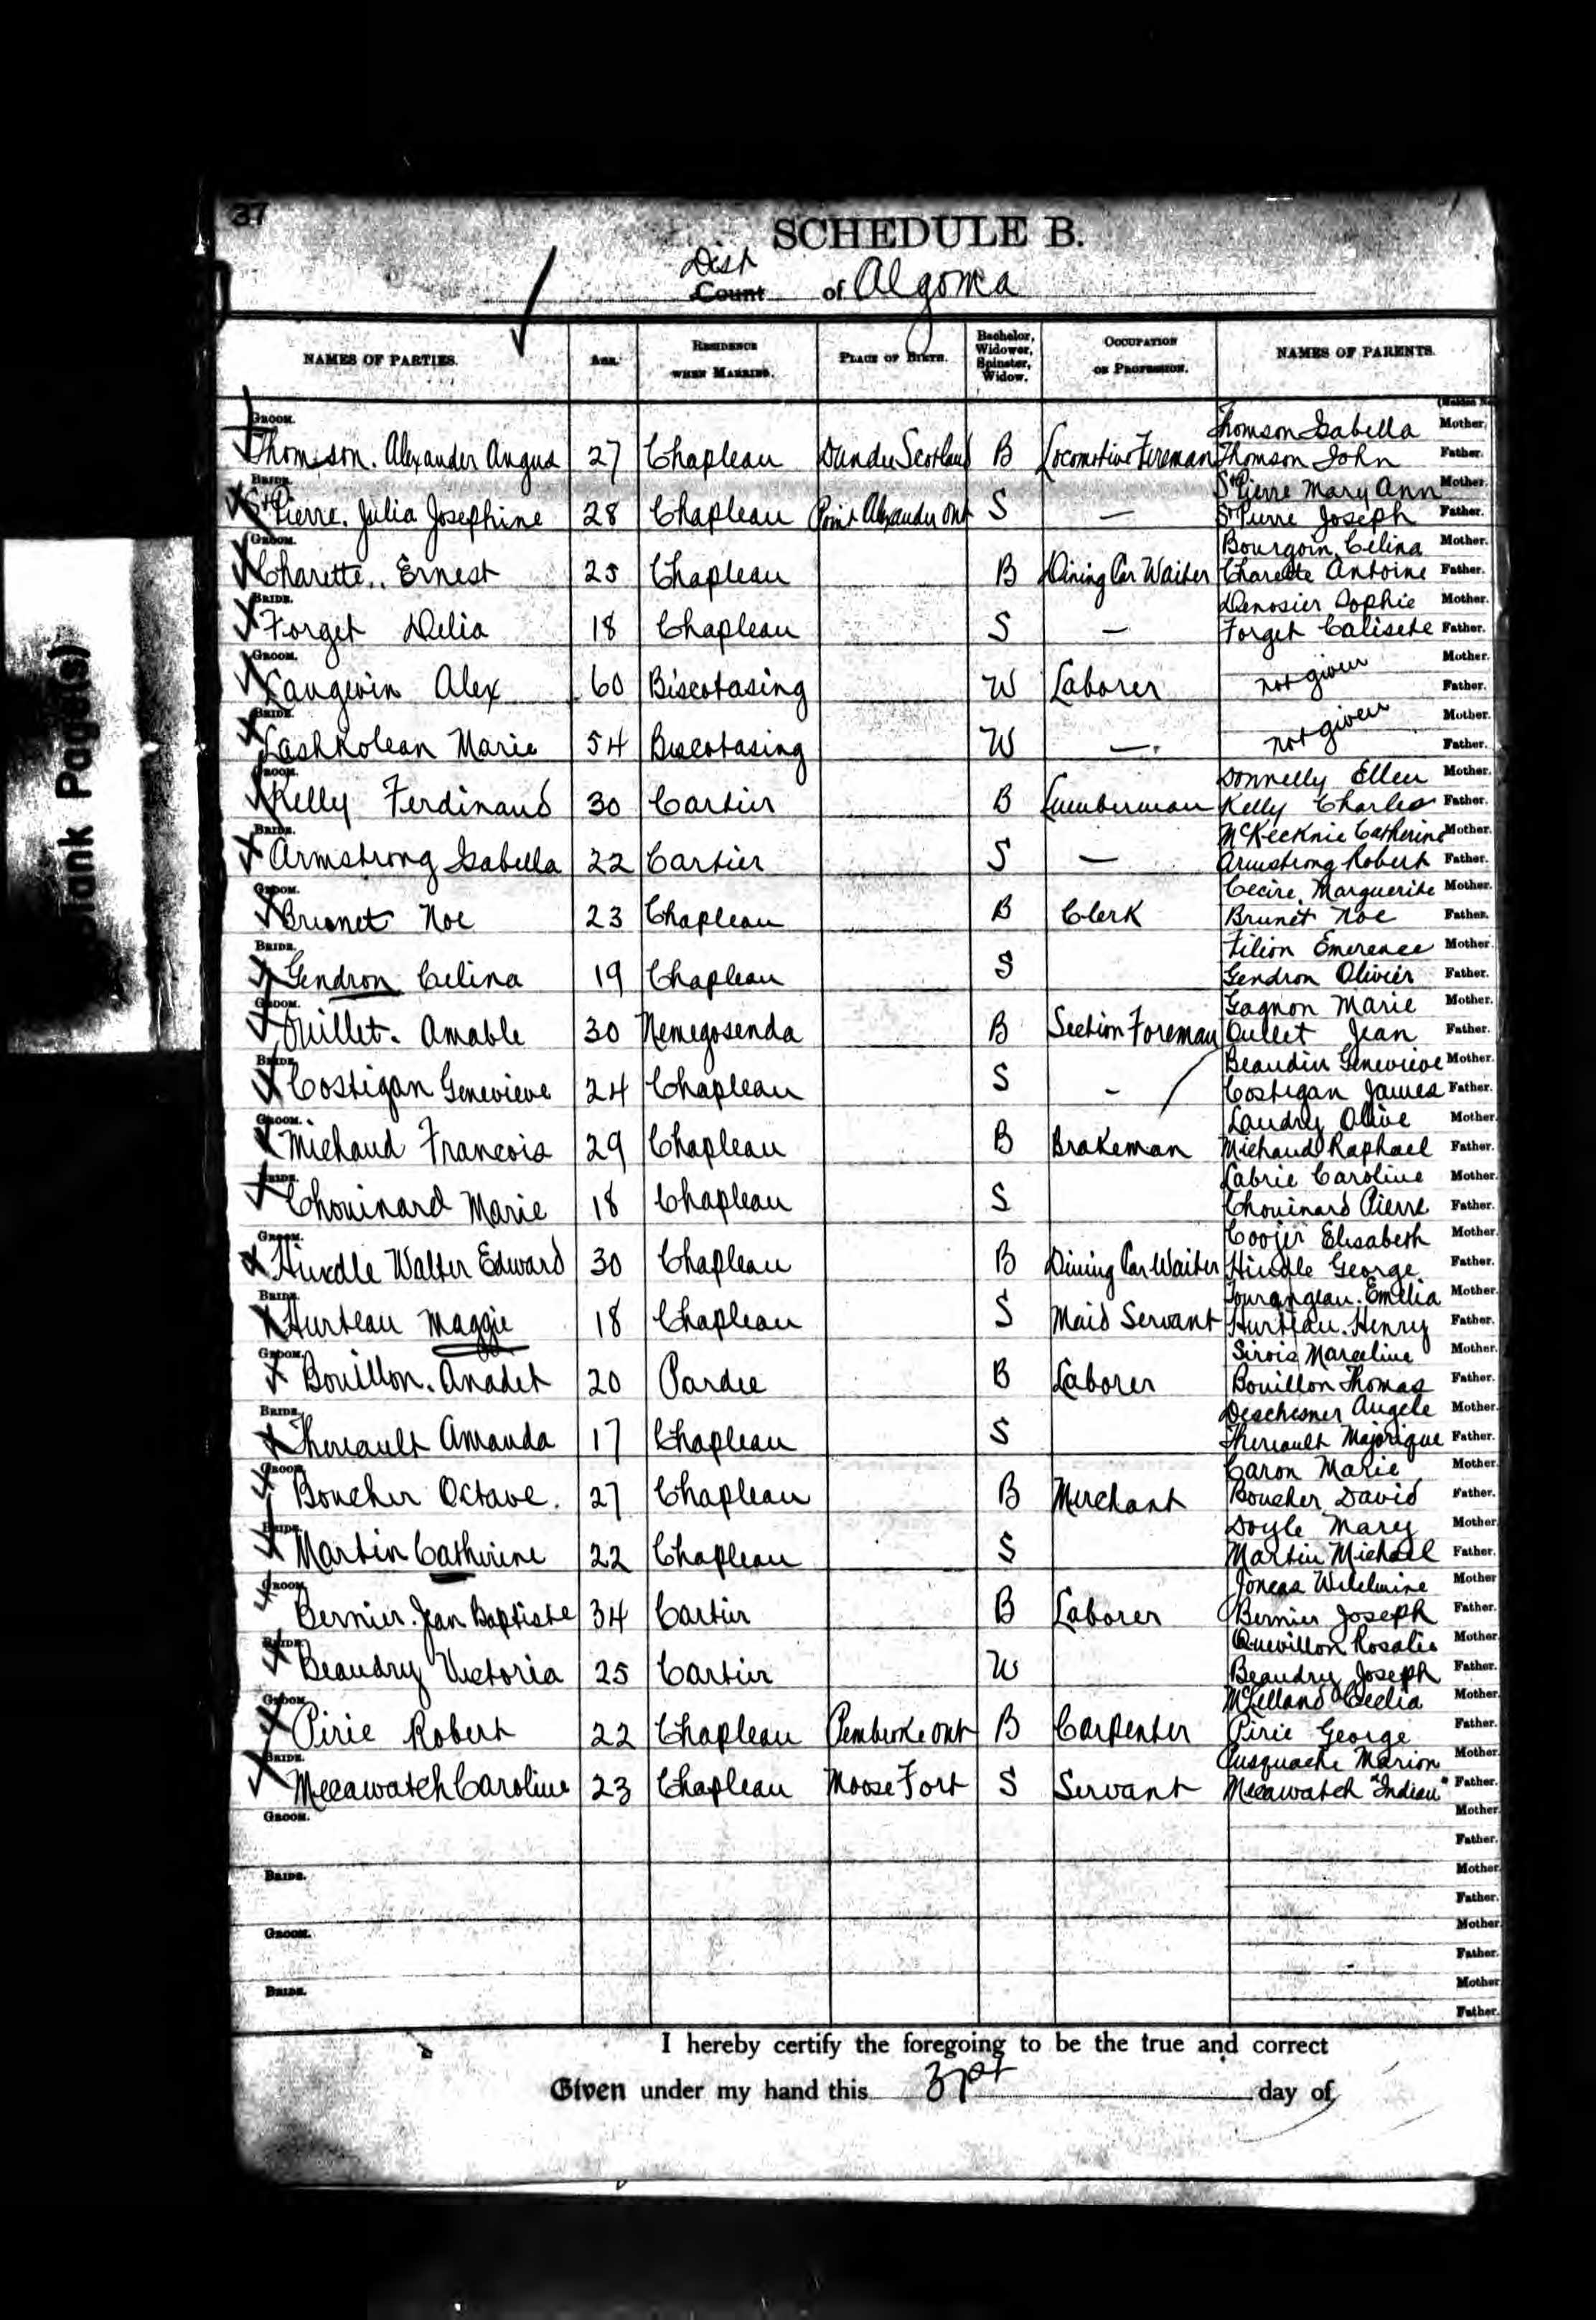 37
SCHEDULE B.
Dist
Count of Algoma
NAMES OF PARTIES. AGE. RESIDENCE WHEN MARRIED. PLACE OF BIRTH. Bachelor, Widower, Spinster, Widow. OCCUPATION OR PROFESSION. NAMES OF PARENTS.
GROOM. Thomson Isabella Mother.
Thomson. Alexander Angus 27 Chapleau Dundee Scotland B Locomotive Fireman Thomson John Father.
BRIDE. St Pierre Mary Ann Mother.
St Pierre. Julia Josephine 28 Chapleau Point Alexander Ont S — St Pierre Joseph Father.
GROOM. Bourgoin, Celina Mother.
Charette. Ernest 25 Chapleau B Dining Car Waiter Charette Antoine Father.
BRIDE. Sophie Mother.
Forget Delia 18 Chapleau S — Forget Calisete Father.
GROOM. Mother.
Langevin Alex 60 Biscotasing W Laborer not given Father.
BRIDE. Mother.
Lashkolean Marie 54 Biscotasing W — not given Father.
GROOM. Donnelly Ellen Mother.
Kelly Ferdinand 30 Cartier B Lumberman Kelly Charles Father.
BRIDE. McKecknie Catherine Mother.
Armstrong Isabella 22 Cartier S — Armstrong Robert Father.
GROOM. Cecire, Marguerite Mother.
Brunet Noe 23 Chapleau B Clerk Brunet Noe Father.
BRIDE. Filion Emerence Mother.
Gendron Celina 19 Chapleau S Gendron Olivier Father.
GROOM. Gagnon Marie Mother.
Ouillet. Amable 30 Nemegosenda B Section Foreman Oullet Jean Father.
BRIDE. Beaudin Genevieve Mother.
Costigan Genevieve 24 Chapleau S - Costigan James Father.
GROOM. Landry Olive Mother.
Michaud Francois 29 Chapleau B Brakeman Michaud Raphael Father.
BRIDE. Labrie Caroline Mother.
Chouinard Marie 18 Chapleau S Chouinard Pierre Father.
GROOM. Elisabeth Mother.
Hindle Walter Edward 30 Chapleau B Dining Car Waiter Hindle George Father.
BRIDE. Tourangeau. Emelia Mother.
Hurteau Maggie 18 Chapleau S Maid Servant Hurteau. Henry Father.
GROOM. Sirois Marceline Mother.
Bouillon. Anadet 20 Pardee B Laborer Bouillon Thomas Father.
BRIDE. Deschesner Angele Mother.
Theriault Amanda 17 Chapleau S Theriault Majorique Father.
GROOM. Caron Marie Mother.
Boucher Octave. 27 Chapleau B Merchant Boucher David Father.
BRIDE. Doyle Mary Mother.
Martin Catherine 22 Chapleau S Martin Michael Father.
GROOM. Joncas Wilelmine Mother
Bernier. Jean Baptiste 34 Cartier B Laborer Bernier Joseph Father.
BRIDE. Quevillon Rosalie Mother
Beaudry Victoria 25 Cartier W Beaudry Joseph Father.
GROOM. McLelland Cecelia Mother.
Pirie Robert 22 Chapleau Pembroke Ont B Carpenter Pirie George Father.
BRIDE. Marion Mother
Mecawatch Caroline 23 Chapleau Moose Fort S Servant Mecawatch "Indian" Father.
GROOM. Mother.
Father.
BRIDE. Mother
Father.
GROOM. Mother
Father.
BRIDE. Mother
Father.
I hereby certify the foregoing to be the true and correct
Given under my hand this 31st day of